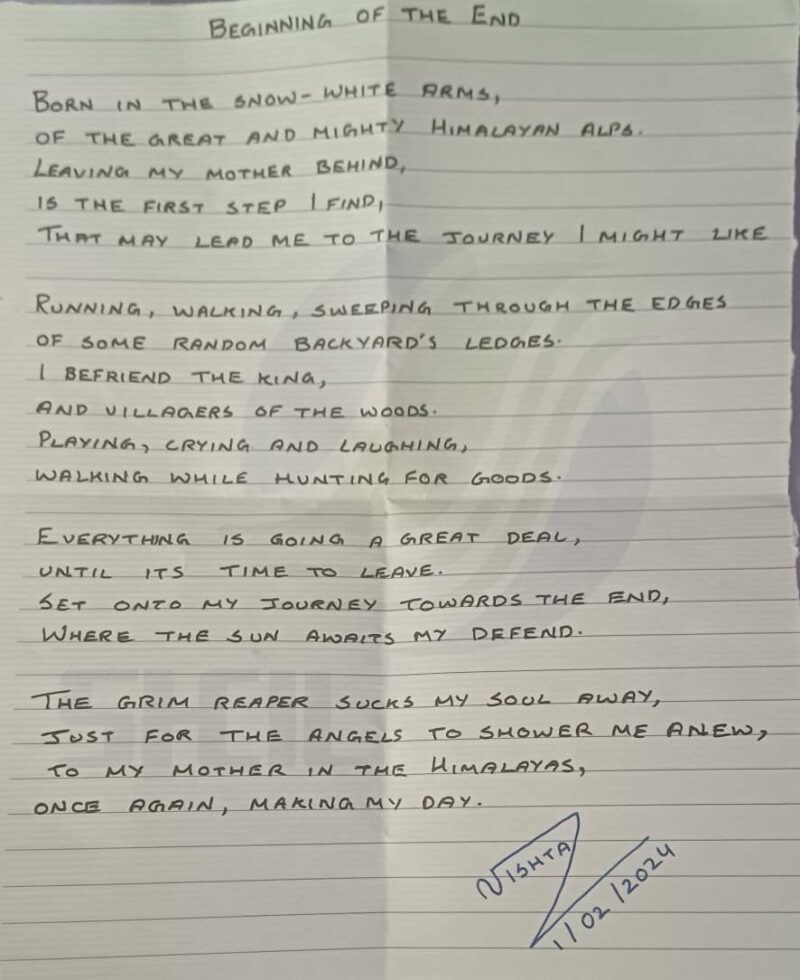 BEGINNING OF THE END
BORN IN THE SNOW-WHITE ARMS,
OF THE GREAT AND MIGHTY HIMALAYAN ALPS.
LEAVING MY MOTHER BEHIND,
IS THE FIRST STEP I FIND,
THAT MAY LEAD ME TO THE JOURNEY I MIGHT LIKE
RUNNING, WALKING, SWEEPING THROUGH THE EDGES
OF SOME RANDOM BACKYARD'S LEDGES.
I BEFRIEND THE KING,
AND VILLAGERS OF THE WOODS.
PLAYING, CRYING AND LAUGHING,
WALKING WHILE HUNTING FOR GOODS.
EVERYTHING IS GOING A GREAT DEAL,
UNTIL ITS TIME TO LEAVE.
SET ONTO MY JOURNEY TOWARDS THE END,
WHERE THE SUN AWAITS MY DEFEND.
THE GRIM REAPER SUCKS MY SOUL AWAY,
JUST FOR THE ANGELS TO SHOWER ME ANEW,
TO MY MOTHER IN THE HIMALAYAS,
ONCE AGAIN, MAKING MY DAY.
NISHTA
1/02/2024